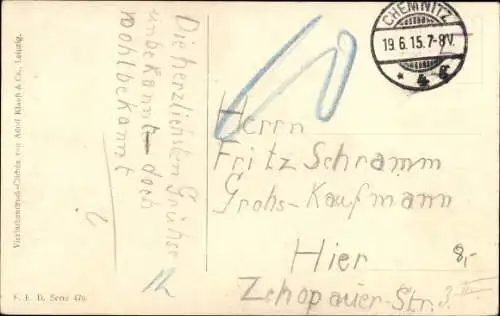 CHEMNITZ
19.6.15.7-8V.
* 4 g
Die herzlichsten Grühse
unbekannt doch
wohlbekannt
Herrn
Fritz Schramm
Grohs-Kaufmann
Hier
Zchopauer-Str. 3 III
8,-
Vierfarbendruck-Clichés von Adolf Klauß & Co., Leipzig.
F. E. D. Serie 476